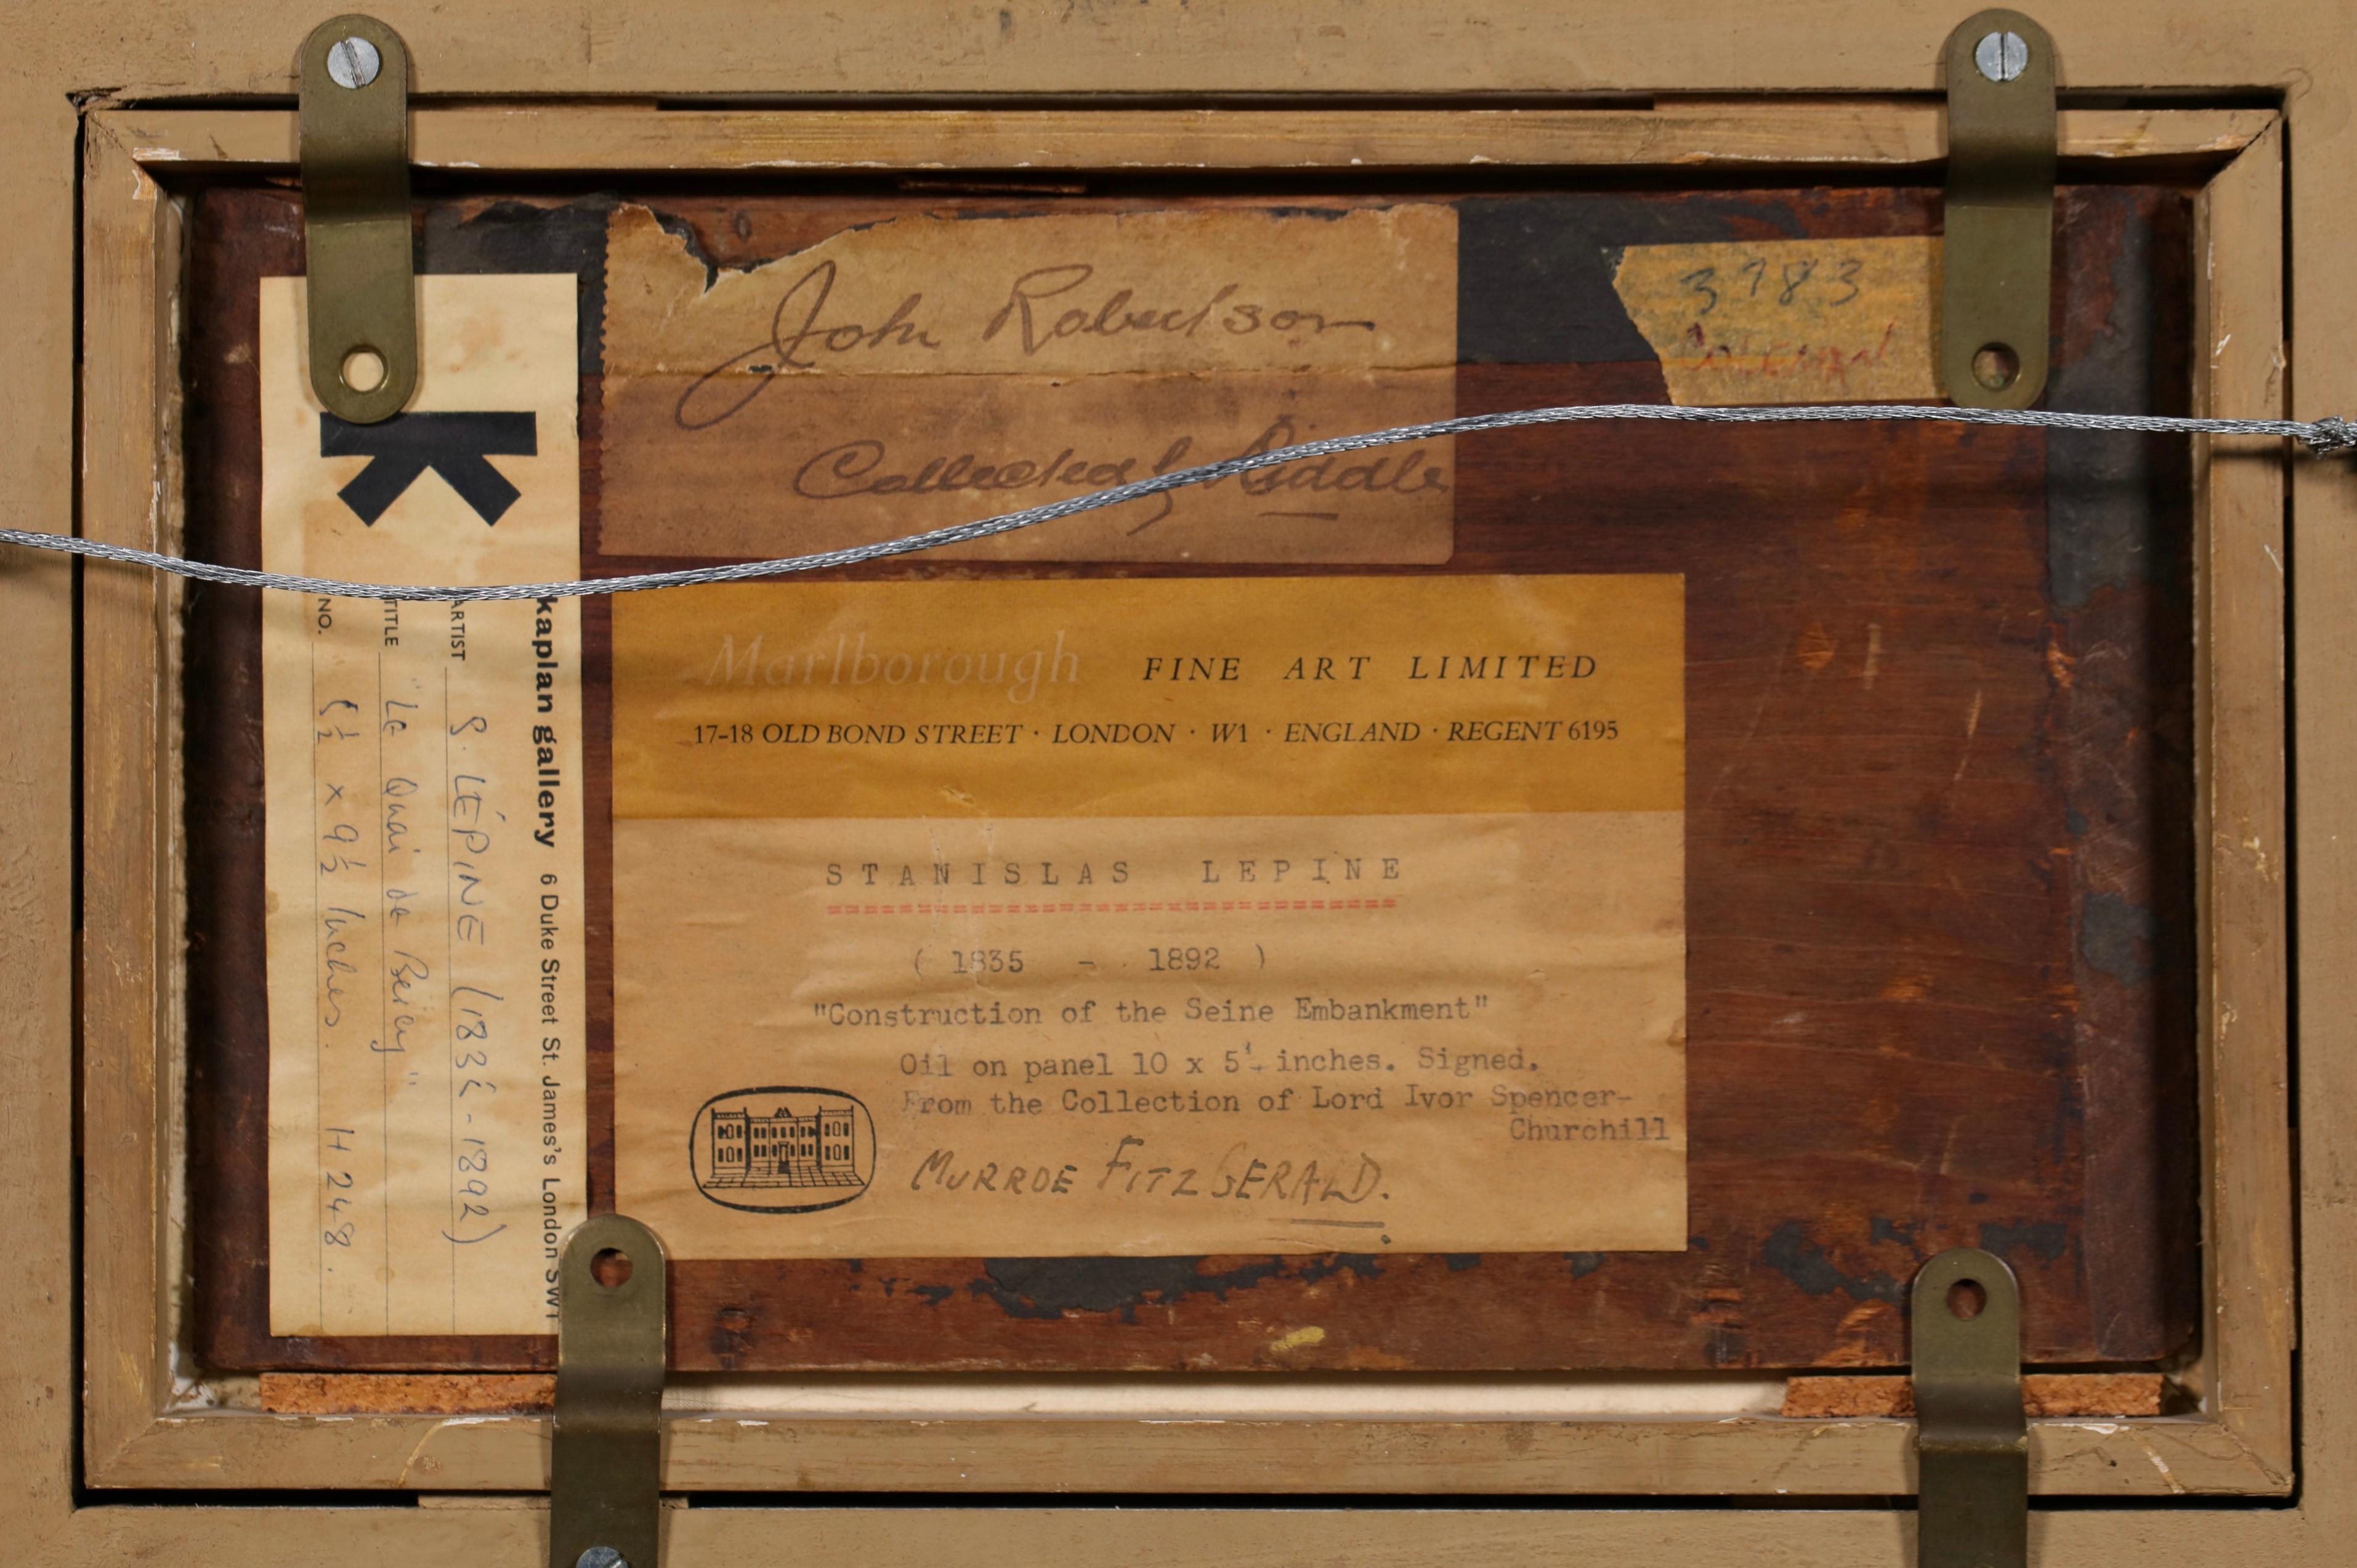 John Robertson
Collected by Riddle
3783
COLEMAN
kaplan gallery 6 Duke Street St. James's London SW1
ARTIST S. LÉPINE (1835-1892)
TITLE "Le Quai de Bercy"
NO. 5½ x 9½ inches. H248.
Marlborough FINE ART LIMITED
17-18 OLD BOND STREET · LONDON · W1 · ENGLAND · REGENT 6195
STANISLAS LEPINE
( 1835 - 1892 )
"Construction of the Seine Embankment"
Oil on panel 10 x 5 inches. Signed.
From the Collection of Lord Ivor Spencer-
Churchill
MURROE FITZGERALD.